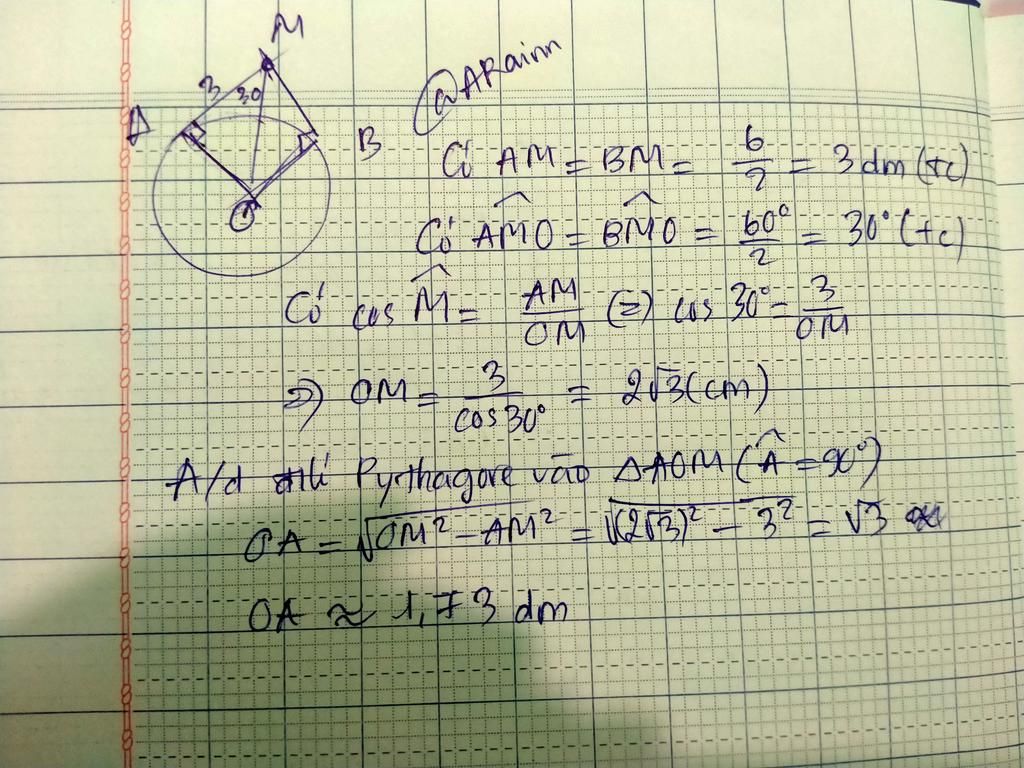 M
3
30
A
B
O
@ARainn
Có AM = BM = 6/2 = 3 dm (tc)
Có AMO = BMO = 60°/2 = 30° (tc)
Có cos M = AM/OM (=) cos 30° = 3/OM
=) OM = 3/cos30° = 2√3 (cm)
A/d đlí Pythagore vào ΔAOM (Â = 90°)
OA = √(OM² - AM²) = √((2√3)² - 3²) = √3
OA ≈ 1,73 dm